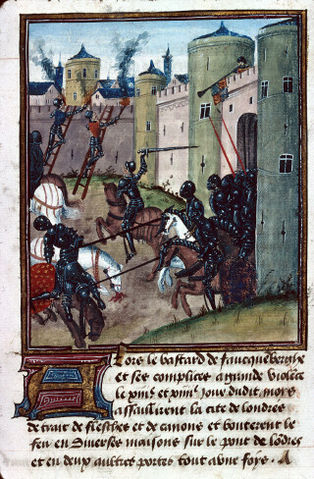 Alors le bastard de faucquberghe
et ses complices a grande violēce
le et jour dudit moys
assaillirent la cite de londres
de trait de flesches et de canons et bouterent le
feu en diverses maisons sur le pont de lōdres
et en deux aultres portes tout a une foys . A